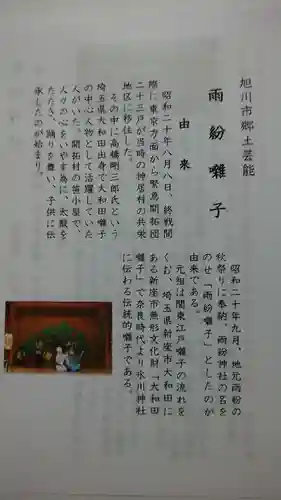 旭川市郷土芸能
雨紛囃子
由来
昭和二十年八月八日、終戦間
際に東京方面から緊急開拓団
二十三戸が当時の神居村の共栄
地区に移住した。
その中に高橋剛三郎氏という
埼玉県大和田出身で大和田囃子
の中心人物として活躍していた
人がいた。開拓村の笹小屋で、
人々の心をいやす為に、太鼓を
たたき、踊りを舞い、子供に伝
承したのが始まり。
昭和二十年九月、地元雨紛の
秋祭りに奉納。雨紛神社の名を
のせ「雨紛囃子」としたのが
由来である。
元祖は関東江戸囃子の流れを
くむ、埼玉県新座市大和田に
ある新座市無形文化財「大和田
囃子」で奈良時代より氷川神社
に伝わる伝統的囃子である。